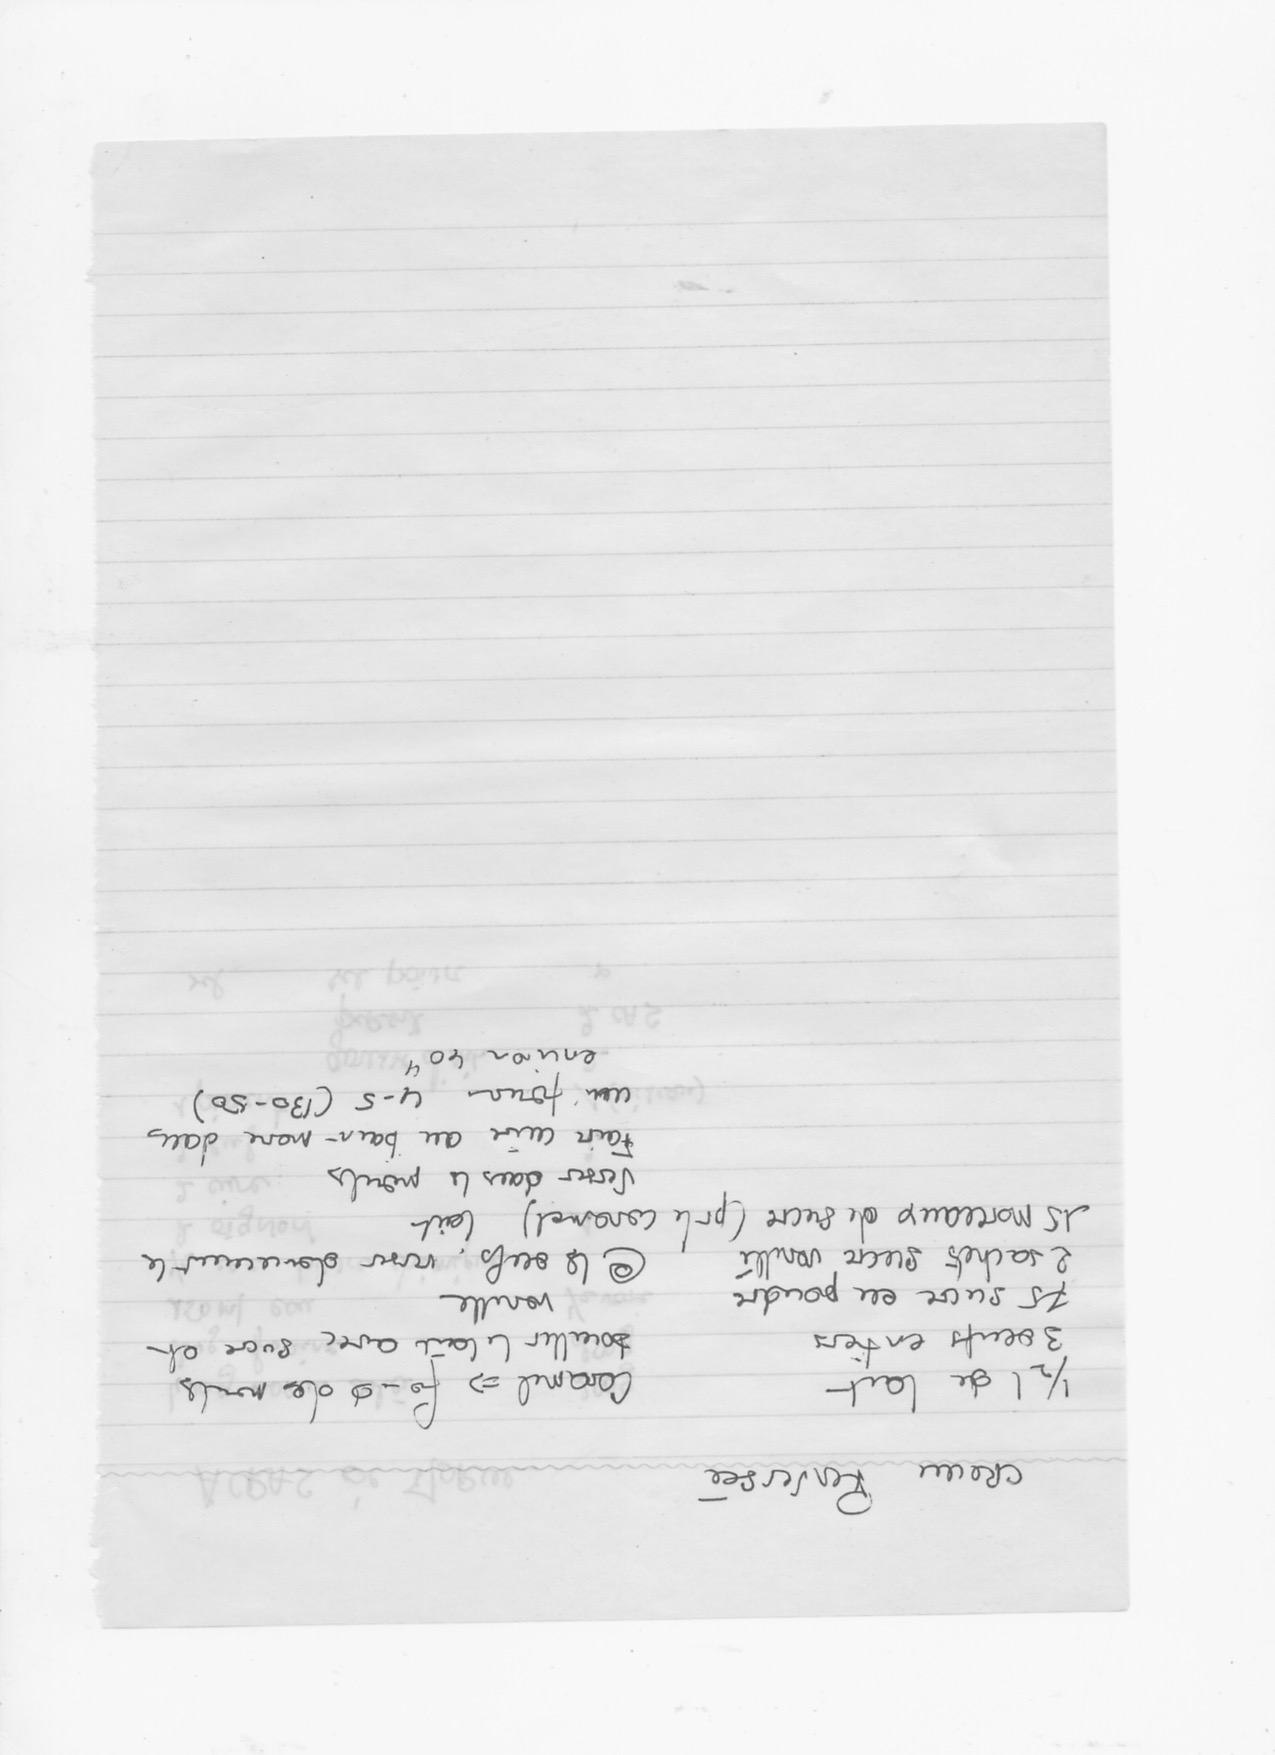 CREME Renversée
1/2 l de lait
3 oeufs entiers
75 sucre en poudre
2 sachets sucre vanillé
15 morceaux de sucre (pr le caramel)
Caramel => fond de moules
Bouillir le lait avec sucre et
vanille
@ ls oeufs, verser doucement le
lait
Verser dans le moules
Faire cuire au bain-marie dans
un four 4-5 (130-50)
environ 40